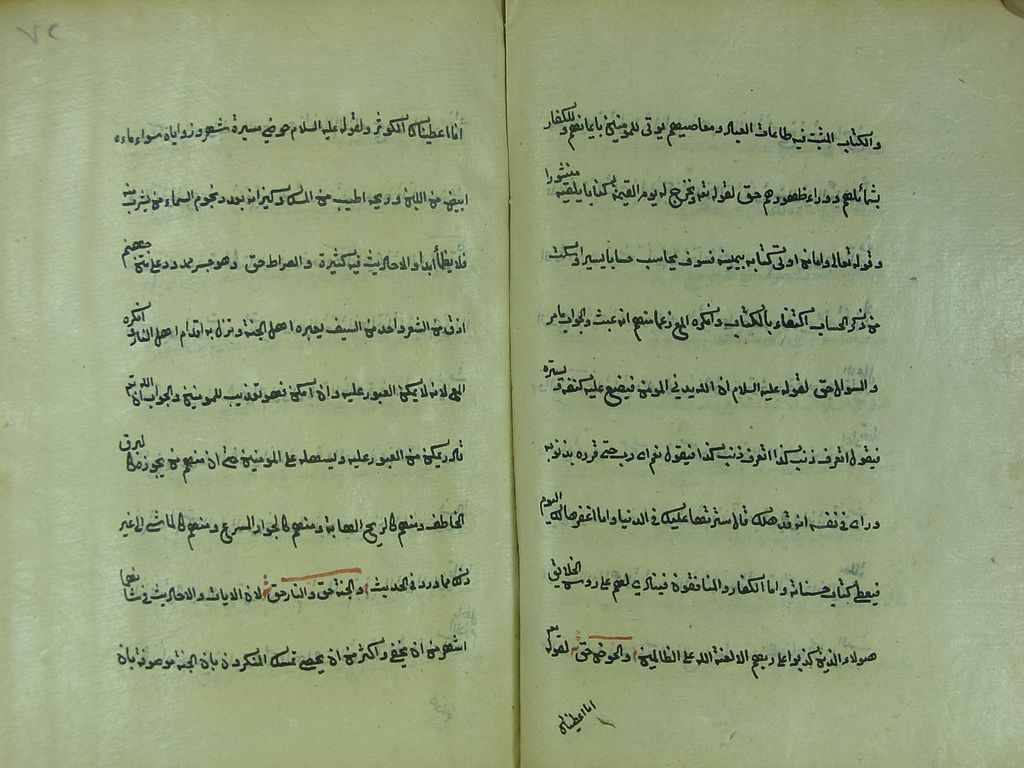 والكتاب المثبت فيه طاعات العباد ومعاصيهم يؤتى للمؤمنين بايمانهم وللكفار
بشمائلهم ووراء ظهورهم حق لقوله تع ونخرج له يوم القيمة كتابا يلقيه منشورا
وقوله تعالى واما من اوتى كتابه بيمينه فسوف يحاسب حسابا يسيرا وسكت
من ذكر الحساب اكتفاء بالكتاب وانكره المع زعما منهم انه عبث والجواب مامر
والسوال حق لقوله عليه السلام ان الله يدني المومن فيضع عليه كنفه وستره
فيقول اتعرف ذنب كذا اتعرف ذنب كذا فيقول نعم اى رب حتى قرره بذنوبه
وراى فى نفسه انه قد هلك قال سترتها عليك فى الدنيا وانا اغفرها لك اليوم
فيعطى كتاب حسناته واما الكفار والمنافقون فينادى لهم على روس الخلائق
هولاء الذين كذبوا على ربهم الا لعنة الله على الظالمين والحوض حق لقوله تع
انا اعطيناك
انا اعطيناك الكوثر ولقوله عليه السلام حوضي مسيرة شهر وزواياه سواء ماءه
ابيض من اللبن وريحه اطيب من المسك وكيزانه بعدد نجوم السماء من يشرب منه
فلا يظمأ ابدا والاحاديث فيه كثيرة والصراط حق وهو جسر ممدود على متن جهنم
ادق من الشعر واحد من السيف يعبره اهل الجنة وتزل به اقدام اهل النار وانكره
المع لانه لا يمكن العبور عليه وان امكن فهو تعذيب للمومنين والجواب ان الله تع
قادر يمكن من العبور عليه ويسهله على المومنين حتى ان منهم من يجوزه كالبرق
الخاطف ومنهم كالريح الهابة ومنهم كالجواد المسرع ومنهم كالماشى الى غير
ذلك مما ورد فى الحديث والجنة حق والنار حق لان الايات والاحاديث فى شانهما
اشهر من ان يخفى واكثر من ان يحصى تمسك المنكرون بان الجنة موصوفة بان